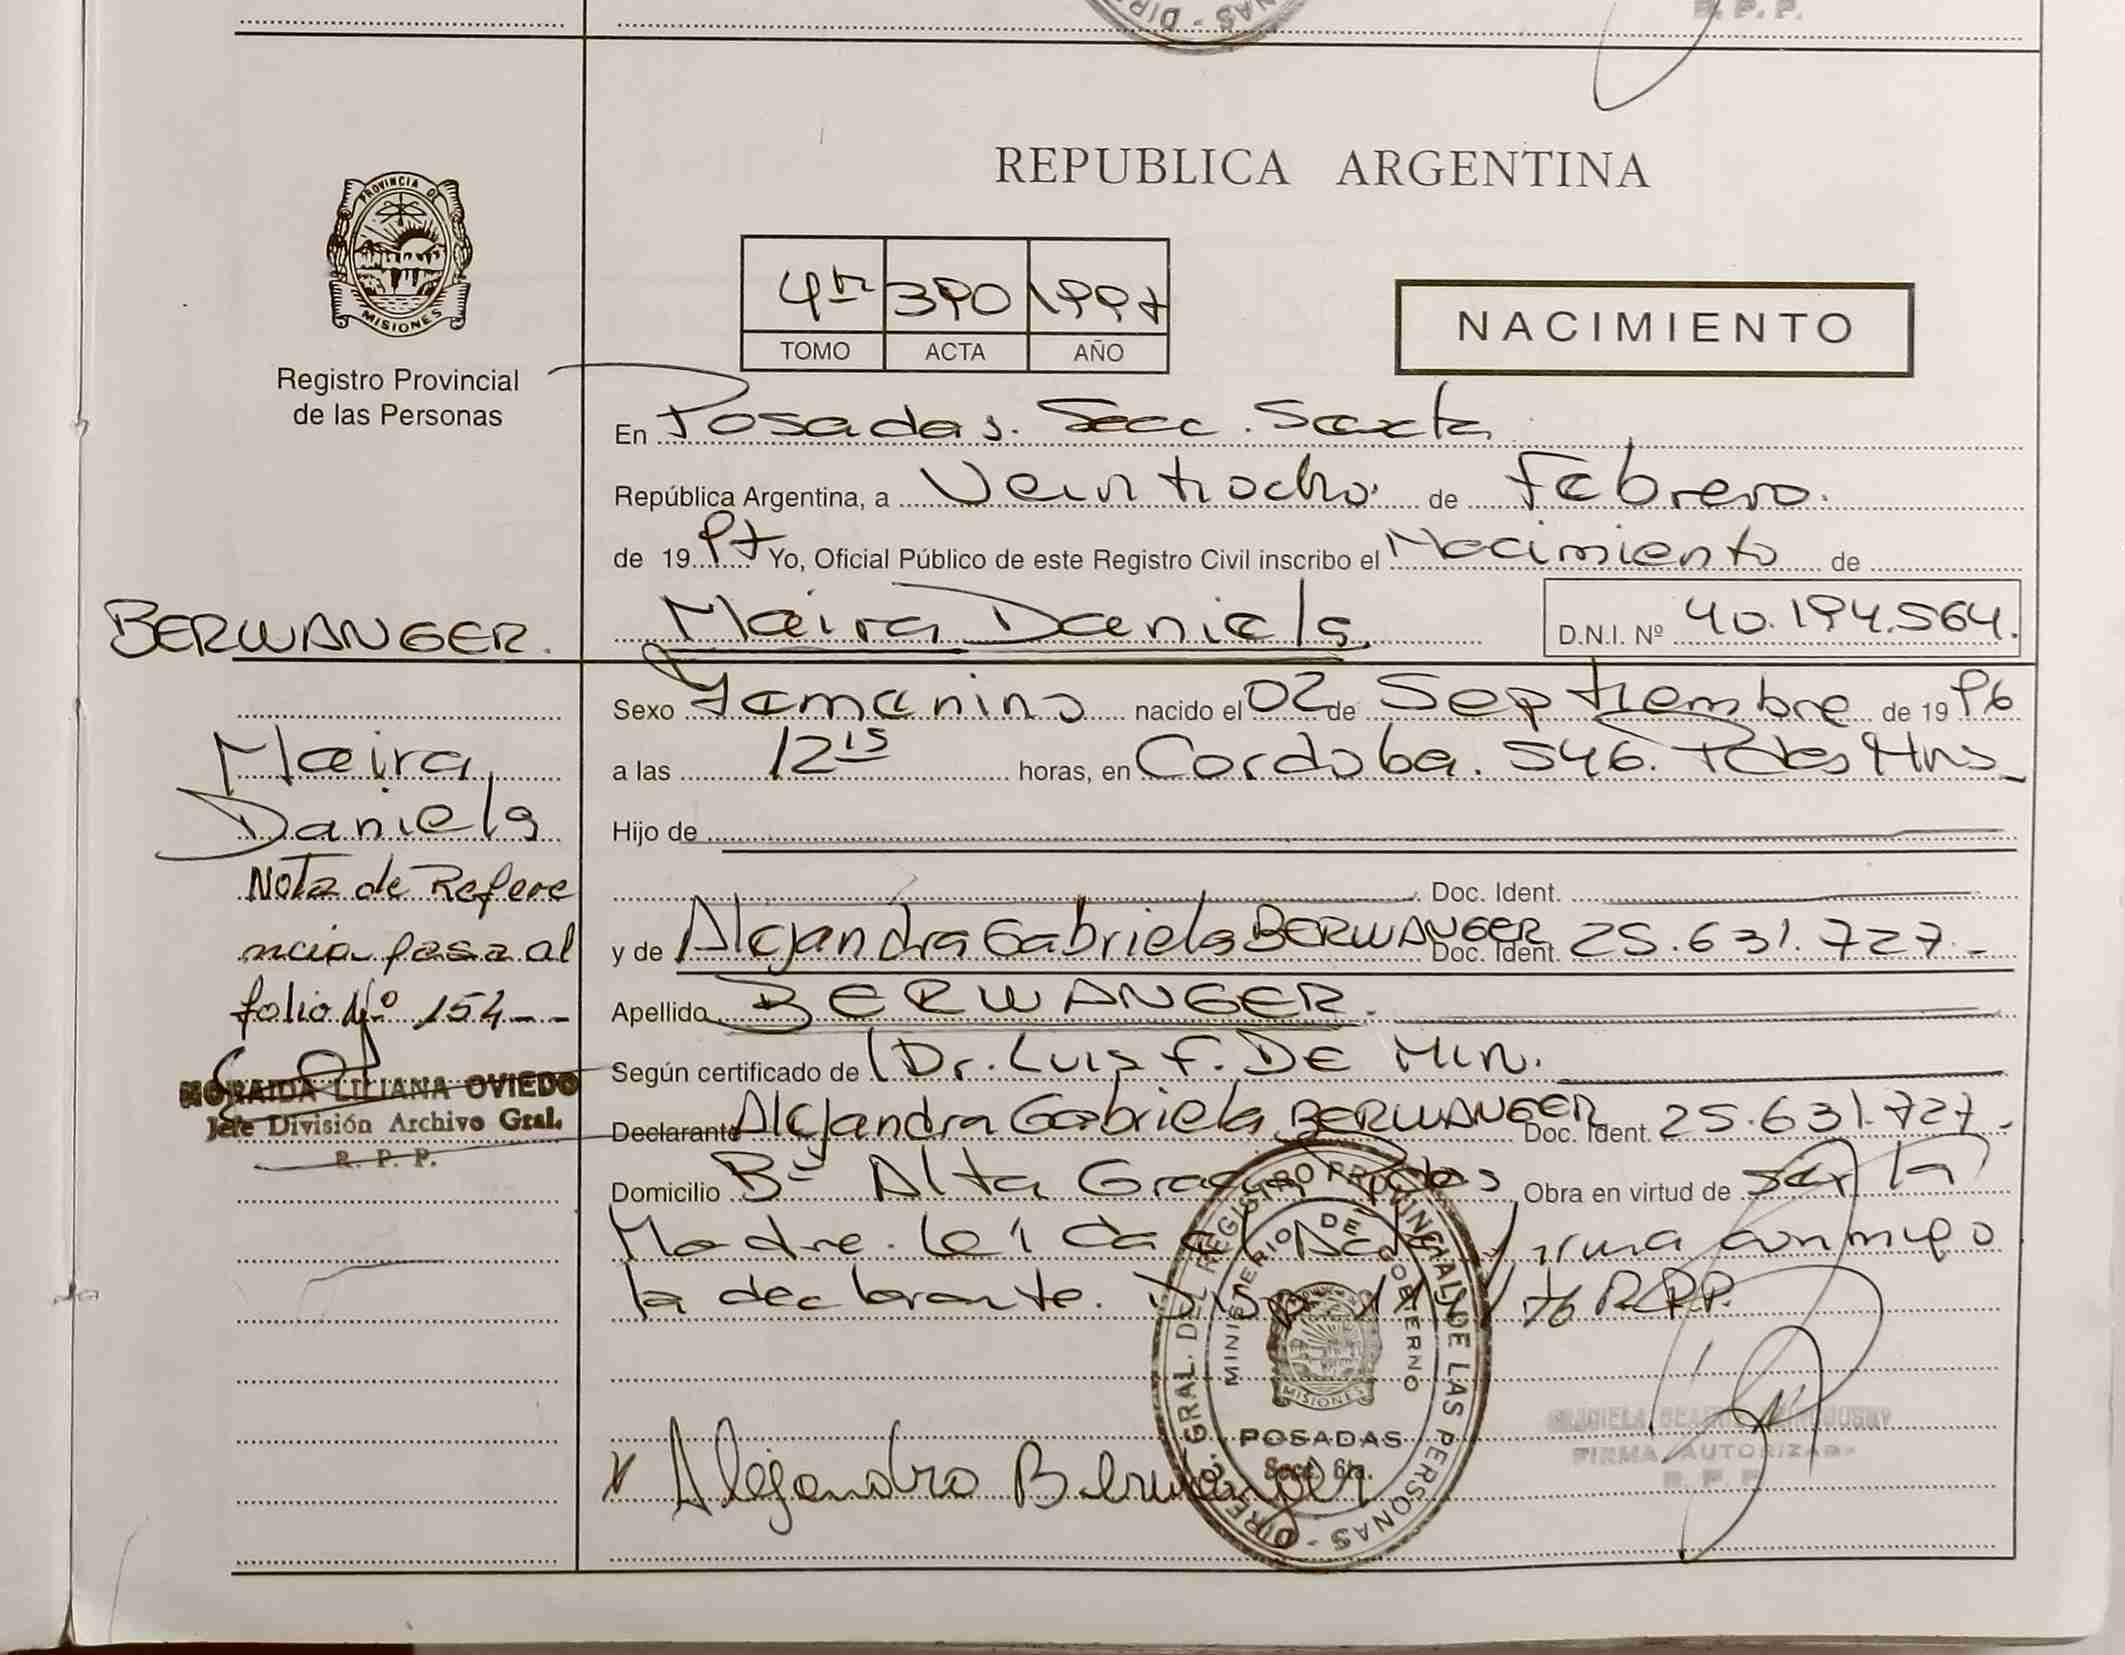 R. P. P.
PROVINCIA DE
MISIONES
Registro Provincial
de las Personas
REPUBLICA ARGENTINA
4to 390 1997
TOMO ACTA AÑO
NACIMIENTO
En Posadas. Secc. Sexta
República Argentina, a Veintiocho de Febrero.
de 1997 Yo, Oficial Público de este Registro Civil inscribo el Nacimiento de
BERWANGER. Maira Daniela D.N.I. Nº 40.194.564.
Sexo Femenino nacido el 02 de Septiembre de 1996
a las 12 15 horas, en Cordoba. 546. Pdas Mns
Hijo de
Doc. Ident.
y de Alejandra Gabriela BERWANGER Doc. Ident. 25.631.727.-
Apellido BERWANGER.
Según certificado de Dr. Luis F. DE MIN.
Declarante Alejandra Gabriela BERWANGER Doc. Ident. 25.631.727.-
Domicilio Bº Alta Gracia Pdas Obra en virtud de ser la
Madre. leída el Acta firma conmigo
la declarante. Disp. R.P.P.
Maira
Daniela
Nota de Refere
ncia pasa al
folio Nº 154--
NORAIDA LILIANA OVIEDO
Jefe División Archivo Gral.
R. P. P.
Alejandra Berwanger
DIREC. GRAL. DEL REGISTRO PROVINCIAL DE LAS PERSONAS
MINISTERIO DE GOBIERNO
MISIONES
POSADAS
Secc. 6ta.
FIRMA AUTORIZADA
R. P. P.